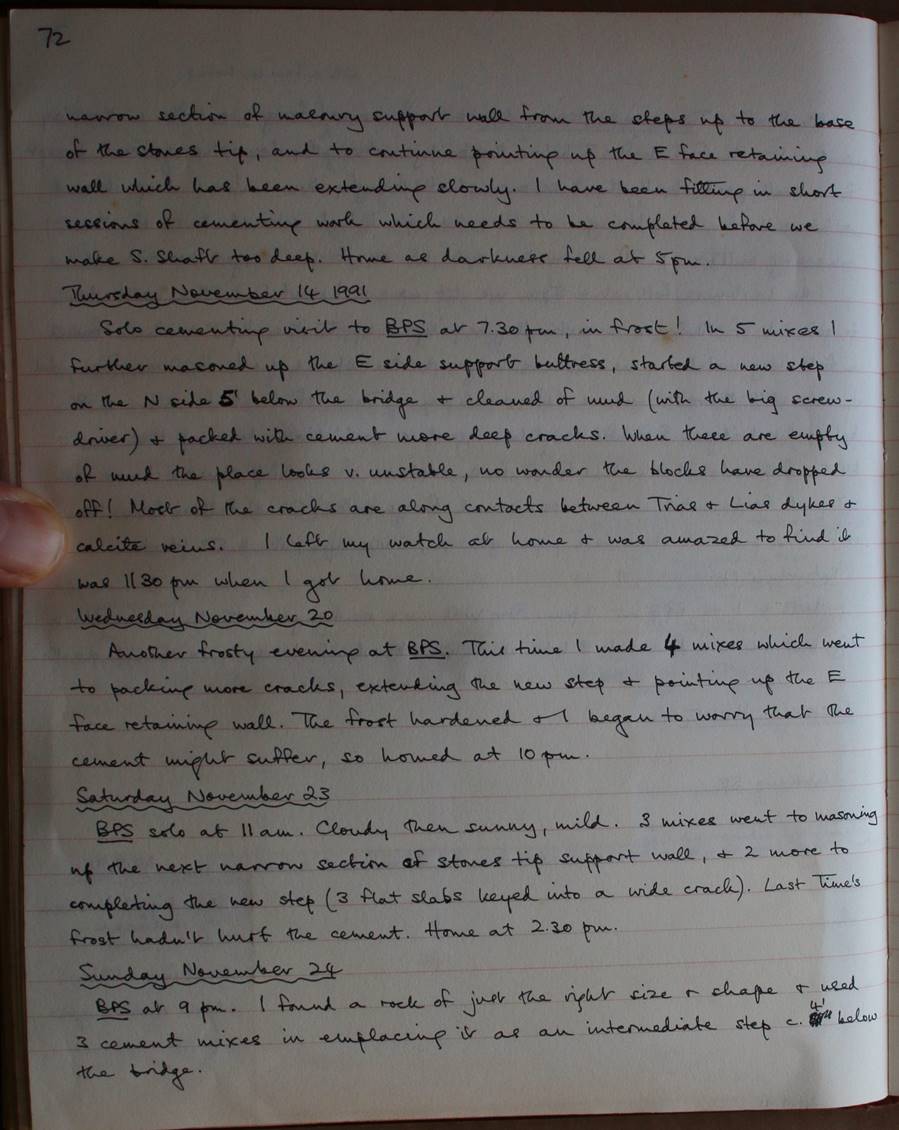 72
narrow section of masonry support wall from the steps up to the base
of the stones tip, and to continue pointing up the E face retaining
wall which has been extending slowly. I have been fitting in short
sessions of cementing work which needs to be completed before we
make S. Shaft too deep. Home as darkness fell at 5pm.
Thursday November 14 1991
Solo cementing visit to BPS at 7.30 pm, in frost! In 5 mixes I
further masoned up the E side support buttress, started a new step
on the N side 5' below the bridge + cleaned of mud (with the big screw-
driver) + packed with cement more deep cracks. When these are empty
of mud the place looks v. unstable, no wonder the blocks have dropped
off! Most of the cracks are along contacts between Trias + Lias dykes +
calcite veins. I left my watch at home + was amazed to find it
was 1130 pm when I got home.
Wednesday November 20
Another frosty evening at BPS. This time I made 4 mixes which went
to packing more cracks, extending the new step + pointing up the E
face retaining wall. The frost hardened + I began to worry that the
cement might suffer, so homed at 10 pm.
Saturday November 23
BPS solo at 11 am. Cloudy then sunny, mild. 3 mixes went to masoning
up the next narrow section of stones tip support wall, + 2 more to
completing the new step (3 flat slabs keyed into a wide crack). Last Time's
frost hadn't hurt the cement. Home at 2.30 pm.
Sunday November 24
BPS at 9 pm. I found a rock of just the right size + shape + used
3 cement mixes in emplacing it as an intermediate step c. 4' below
the bridge.